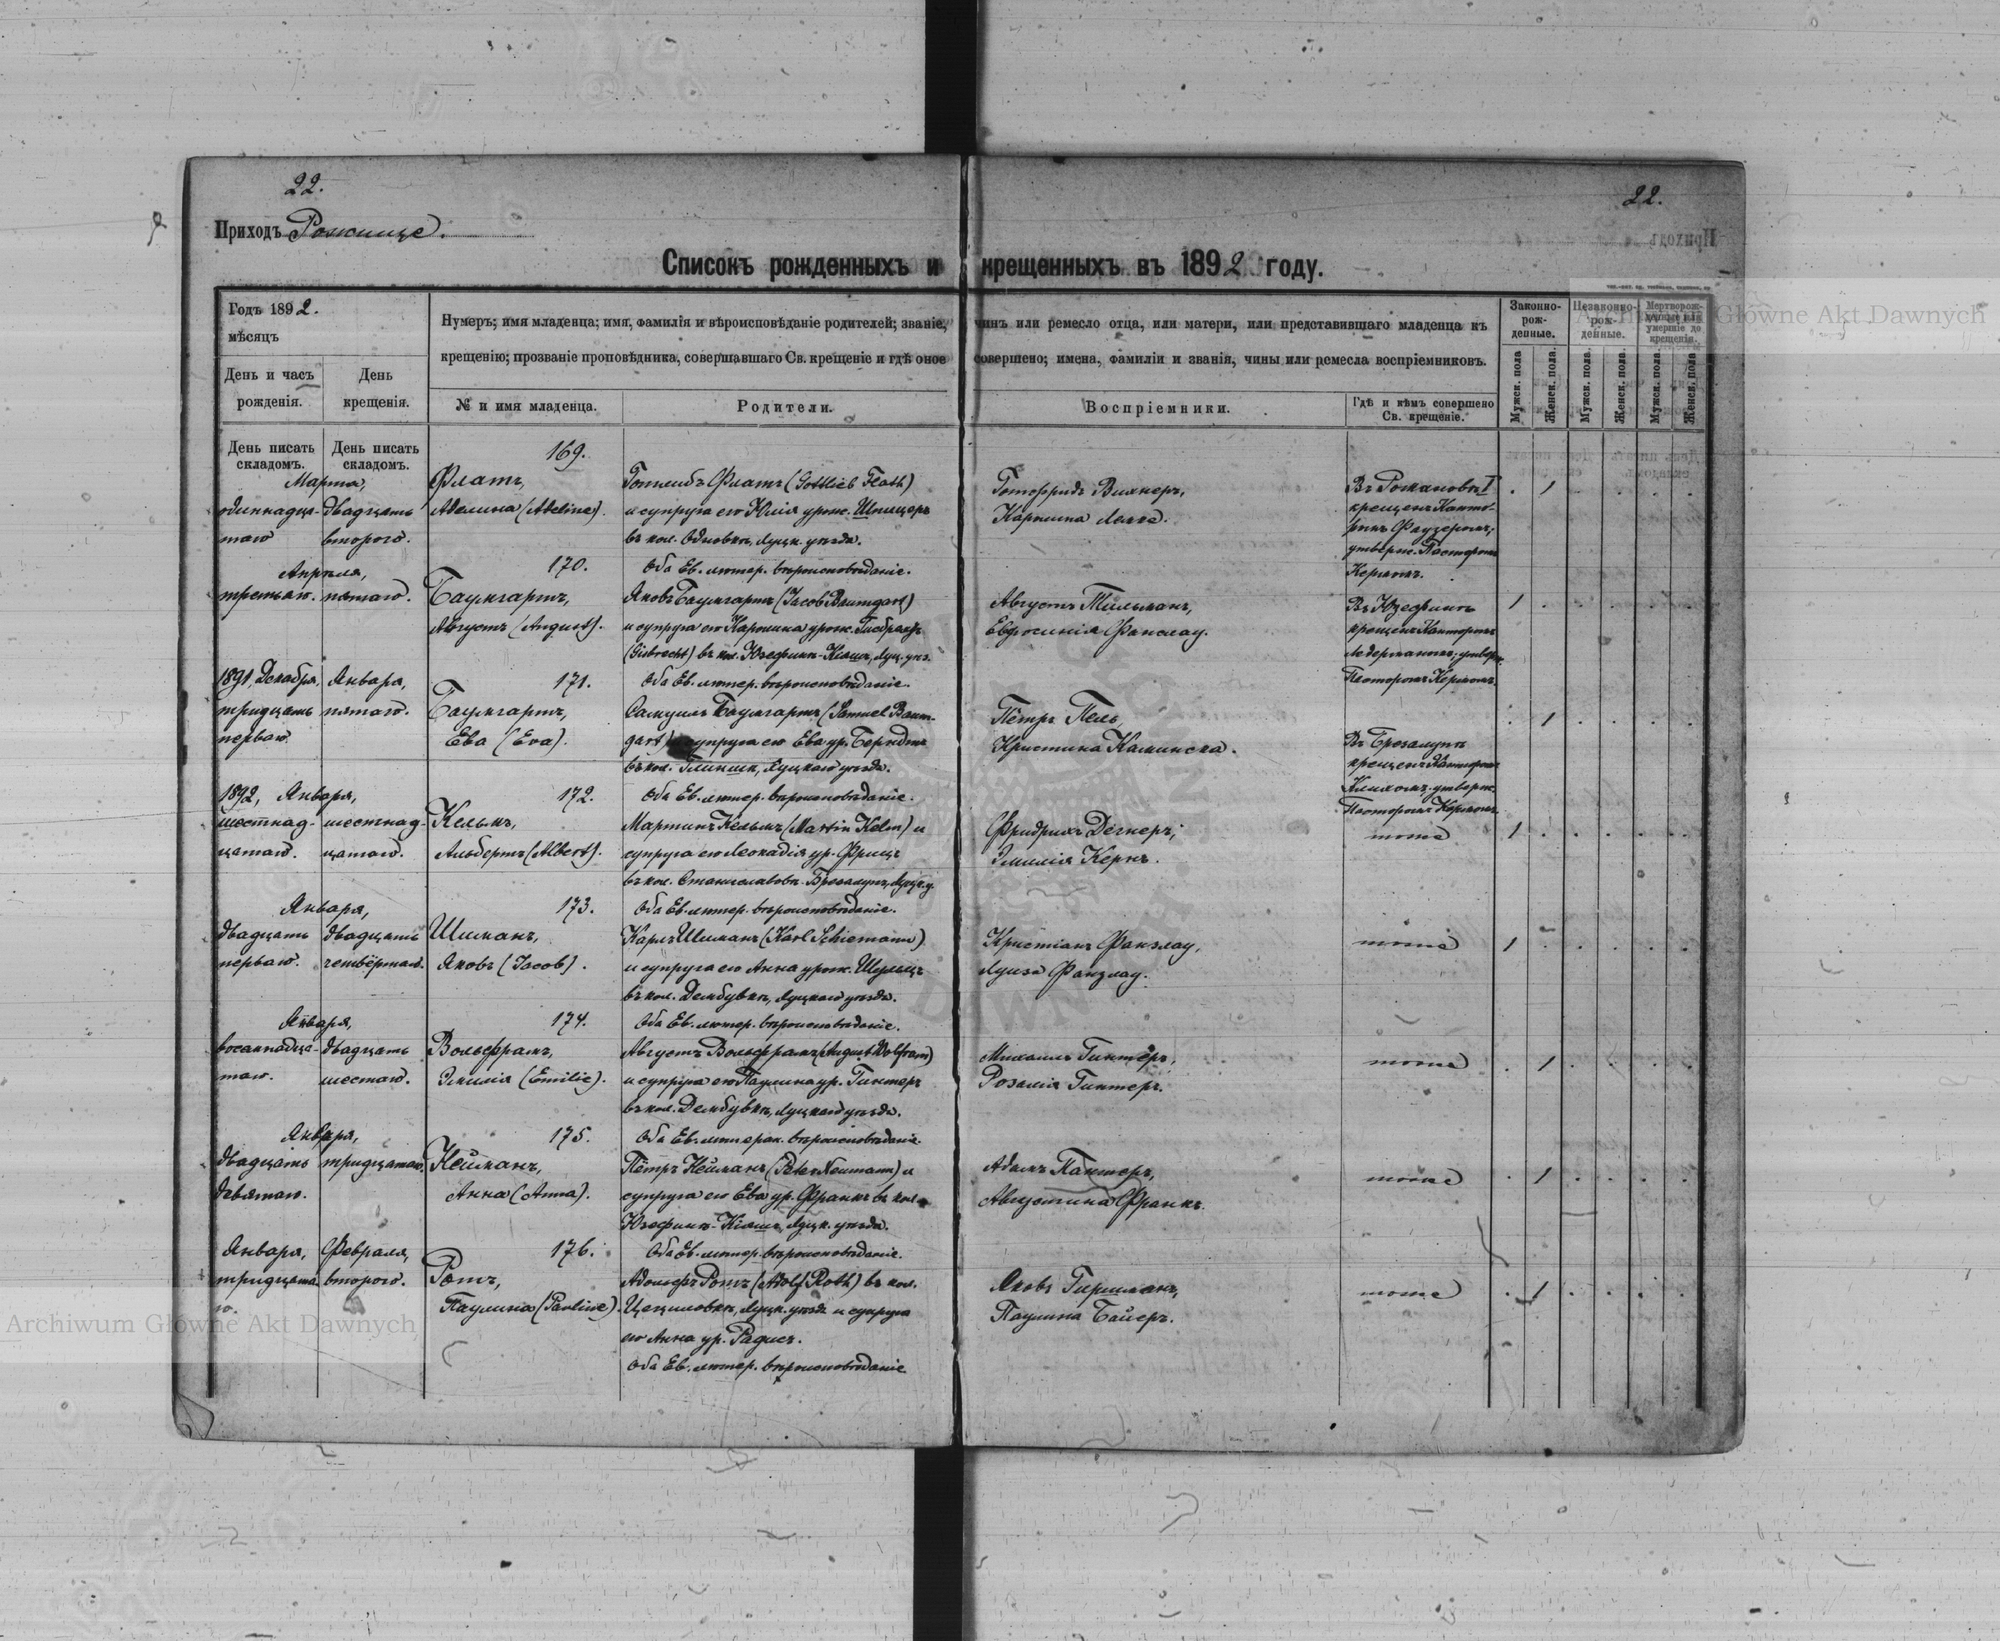 22.
22.
Приходъ Рожище.
Списокъ рожденныхъ и крещенныхъ въ 1892 году.
Годъ 1892.
мѣсяцъ
День и часъ рожденія.
День крещенія.
Нумеръ; имя младенца; имя, фамилія и вѣроисповѣданіе родителей; званіе, чинъ или ремесло отца, или матери, или представившаго младенца къ
крещенію; прозваніе проповѣдника, совершавшаго Св. крещеніе и гдѣ оное совершено; имена, фамиліи и званія, чины или ремесла воспріемниковъ.
№ и имя младенца.
Родители.
Воспріемники.
Гдѣ и кѣмъ совершено Св. крещеніе.
Законно-рож-денные.
Незаконно-рож-денные.
Мертворож-денные или умершіе до крещенія.
Мужск. пола
Женск. пола.
Мужск. пола.
Женск. пола.
Мужск. пола.
Женск. пола
День писать складомъ.
День писать складомъ.
169.
Марта,
одиннадца-
таго
двадцать
второго.
Флатъ,
Аделина (Adeline).
Готлибъ Флатъ (Gottlieb Flath)
и супруга его Юлія урож. Шпицеръ
въ кол. Луцк. уѣзда.
Оба Ев. лютер. вѣроисповѣданіе.
Готфридъ
Каролина
Въ Романовкѣ I
крещенъ Канто-
ромъ
утвержд. Пасторомъ
Керномъ.
170.
Апрѣля,
третьяго.
пятаго.
Баумгартъ,
Августъ (August).
Яковъ Баумгартъ (Jacob Baumgart)
и супруга его Каролина урож. Гисбрехтъ
(Gisbrecht) въ кол. Юзефинъ Луц. уѣз.
Оба Ев. лютер. вѣроисповѣданіе.
Августъ
Евфросинія Фанслау.
Въ Юзефинѣ
крещенъ Канторомъ
утверж.
Пасторомъ Керномъ.
171.
1891, Декабря,
тридцать
перваго.
Января,
пятаго.
Баумгартъ,
Ева (Eva).
Самуилъ Баумгартъ (Samuel Baum-
gart) супруга его Ева ур. Берндтъ
въ кол. Луцкаго уѣзда.
Оба Ев. лютер. вѣроисповѣданіе.
Пётръ Пель,
Христина Каминска.
Въ
крещенъ Канторомъ
утверж.
Пасторомъ Керномъ.
172.
1892, Января,
шестнад-
цатаго.
шестнад-
цатаго.
Кельмъ,
Альбертъ (Albert).
Мартинъ Кельмъ (Martin Kelm) и
супруга его Леокадія ур. Фрицъ
въ кол. Станиславовъ Луцк. у.
Оба Ев. лютер. вѣроисповѣданіе.
Фридрихъ Дегнеръ;
Эмилія Кернъ.
тоже
173.
Января,
двадцать
перваго.
двадцать
четвёртаго.
Шиманъ,
Яковъ (Jacob).
Карлъ Шиманъ (Karl Schiemann)
и супруга его Анна урож. Шульцъ
въ кол. Дембувкѣ, Луцкаго уѣзда.
Оба Ев. лютер. вѣроисповѣданіе.
Христіанъ Фанзлау,
Луиза Фанзлау.
тоже
174.
Января,
восемнадца-
таго.
двадцать
шестаго.
Вольфрамъ,
Эмилія (Emilie).
Августъ Вольфрамъ (August Wolfram)
и супруга его Паулина ур. Гинтеръ
въ кол. Дембувкѣ, Луцкаго уѣзда.
Оба Ев. лютеран. вѣроисповѣданіе.
Михаилъ Гинтеръ,
Розалія Гинтеръ.
тоже
175.
Января,
двадцать
девятаго.
тридцатаго.
Нейманъ,
Анна (Anna).
Пётръ Нейманъ (Peter Neumann) и
супруга его Ева ур. Франкъ въ кол.
Юзефинъ Луцк. уѣзда.
Оба Ев. лютер. вѣроисповѣданіе.
Адамъ
Августина Франкъ.
тоже
176.
Января,
тридцата-
го.
Февраля,
второго.
Ротъ,
Паулина (Pauline).
Адольфъ Ротъ (Adolf Roth) въ кол.
Цециловкѣ, Луцк. уѣзда и супруга
его Анна ур. Радисъ.
Оба Ев. лютер. вѣроисповѣданіе
Яковъ Гиршманъ,
Паулина Байеръ.
тоже
Archiwum Główne Akt Dawnych
Archiwum Główne Akt Dawnych